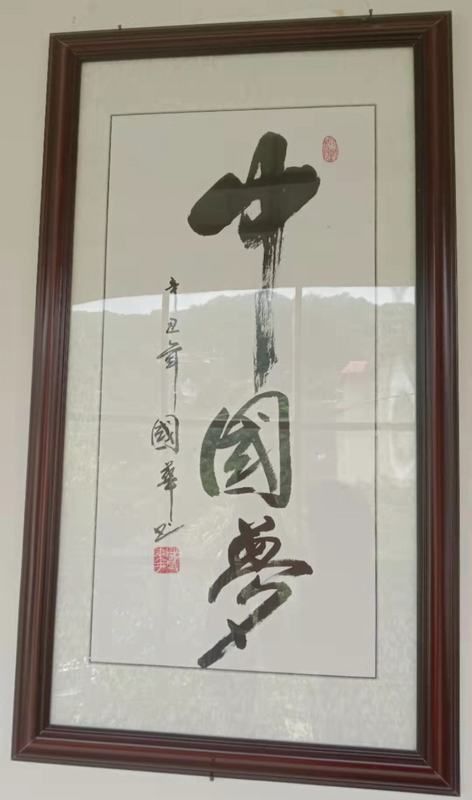 中國夢
辛丑年國華書